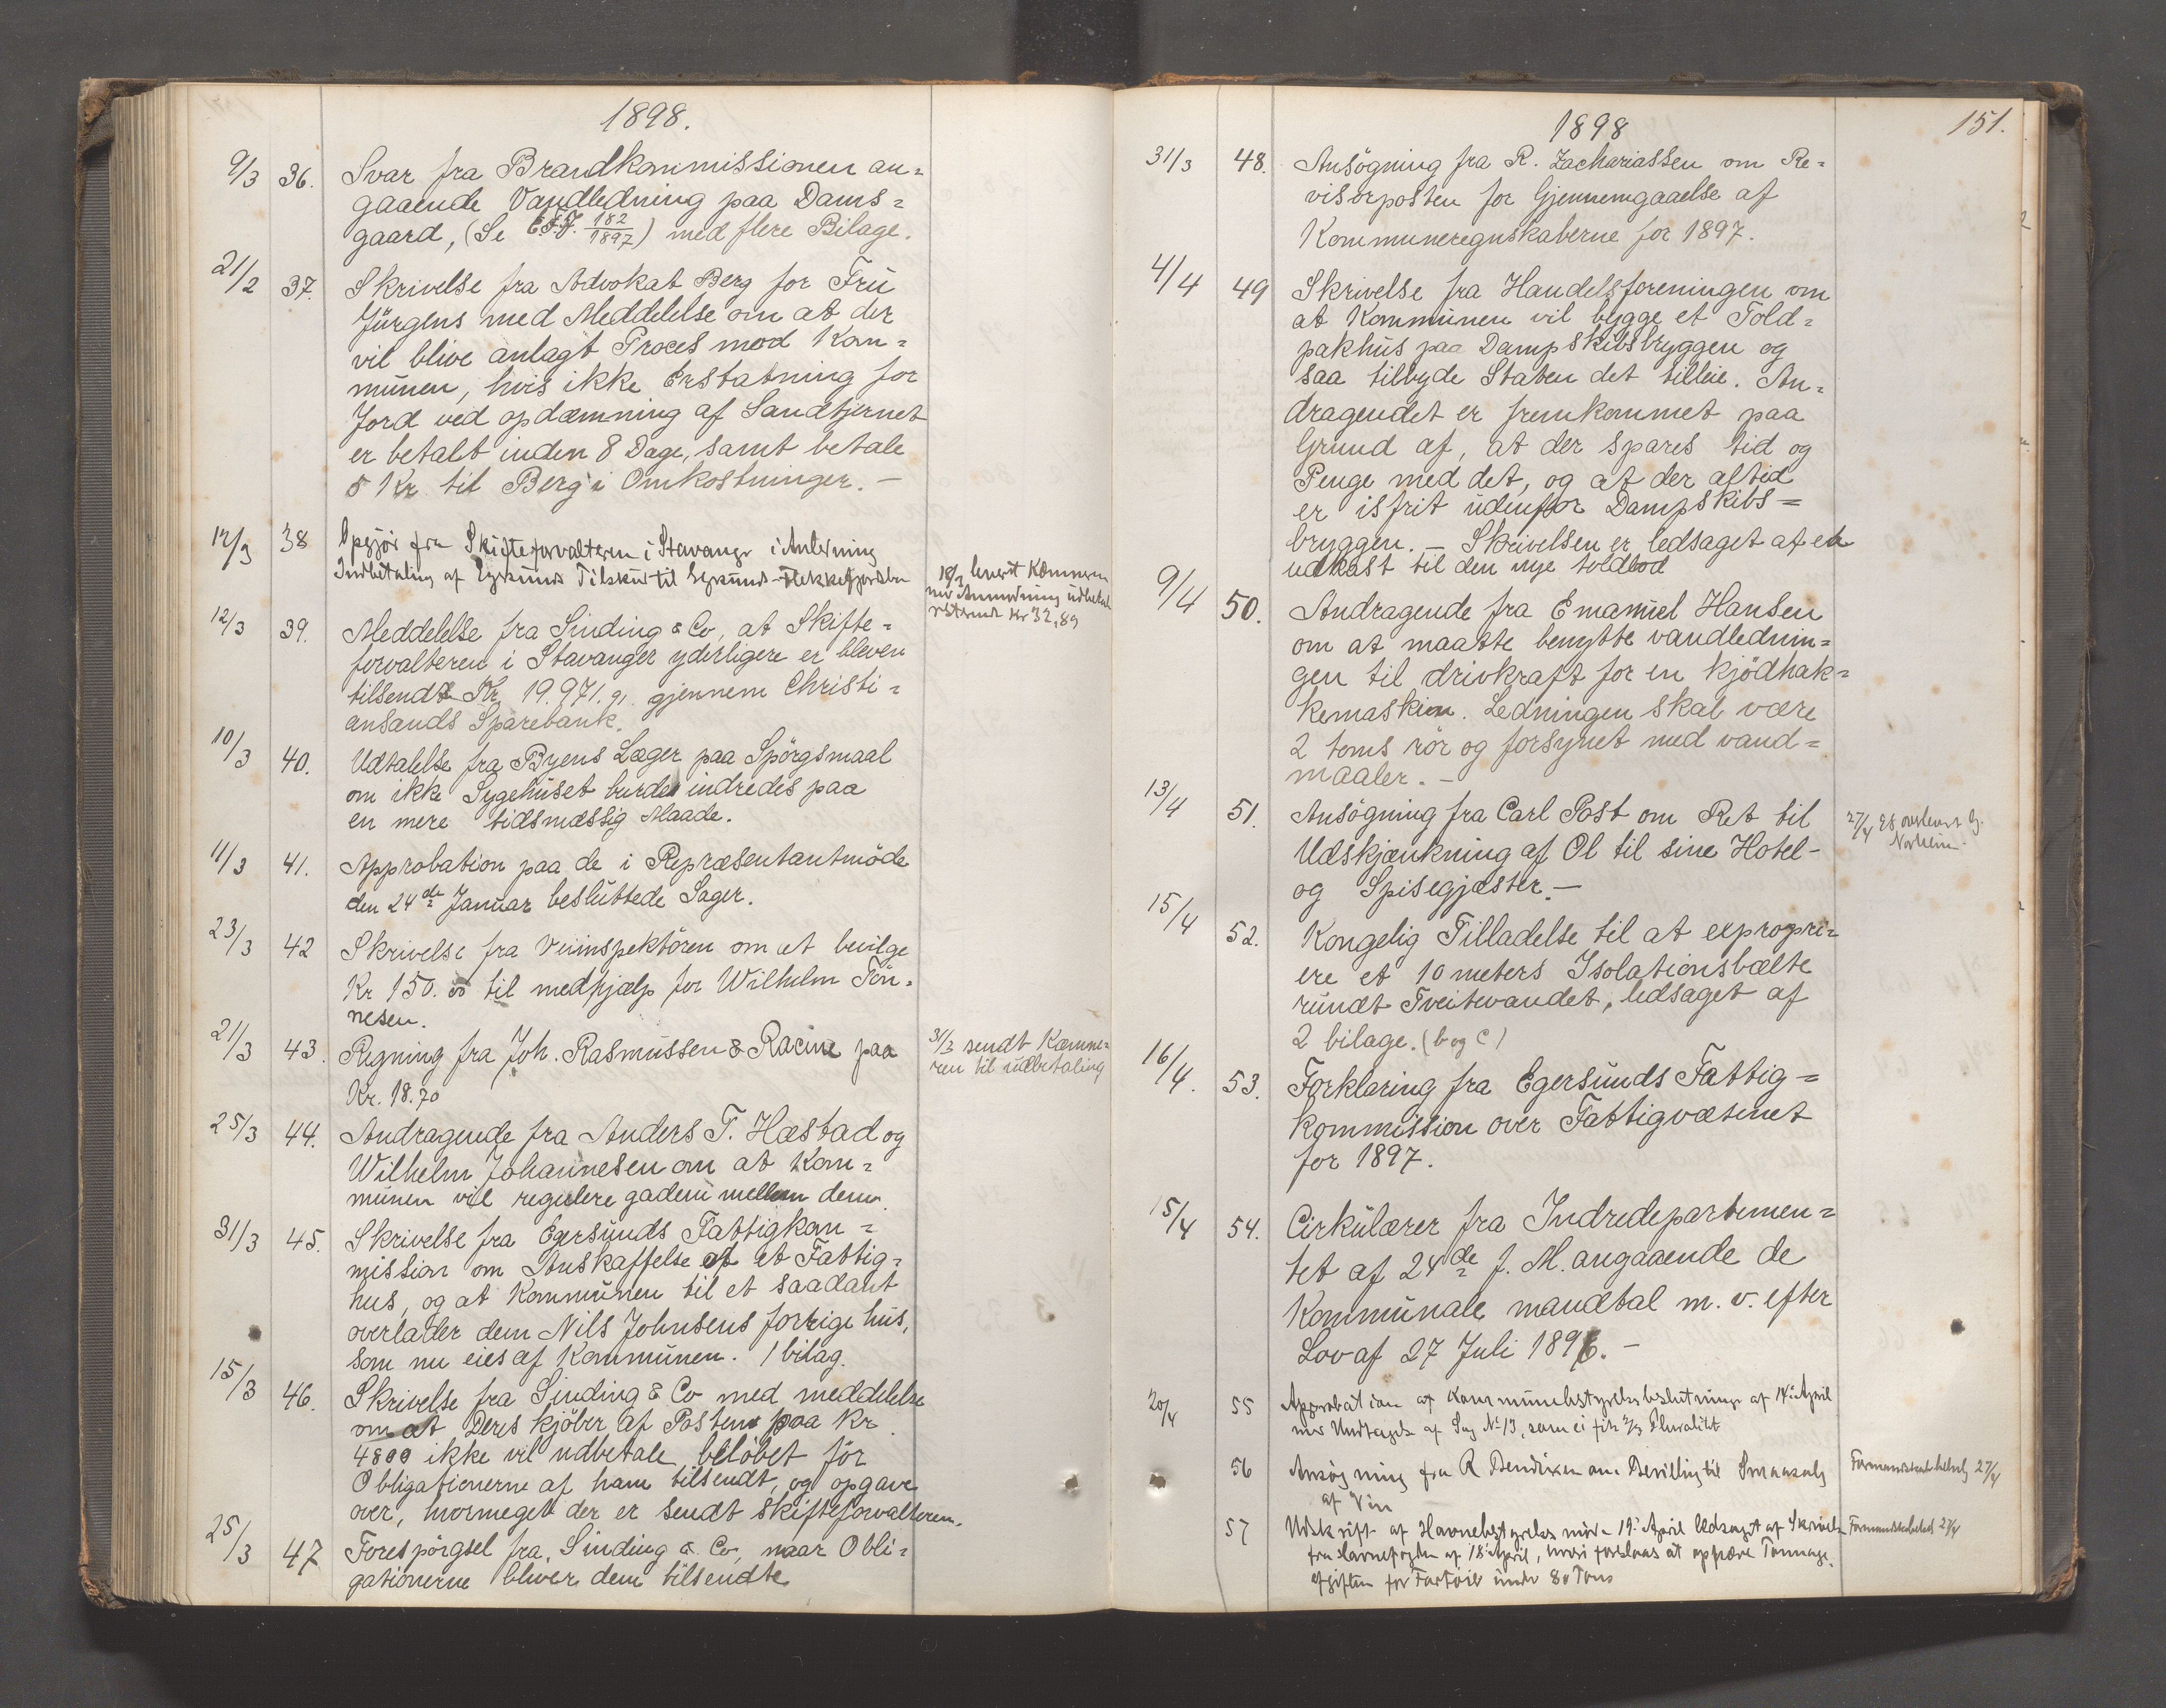 1898.
9/3 36. Svar fra Brandkommissionen an=
gaaende Vandledning paa Dams=
gaard, (Se E.F.J. 182/1897) med flere Bilage.
21/2 37. Skrivelse fra Advokat Berg for Fru
Jürgens med Meddelelse om at der
vil blive anlagt Proces mod Kom=
munen, hvis ikke Erstatning for
Jord ved opdæmning af Sandtjernet
er betalt inden 8 Dage, samt betale
5 Kr til Berg i Omkostninger. —
12/3 38 Opgjör fra Skifteforvalteren i Stavanger i Anledning
Indbetaling af Egersunds Tilskud til Egersund-Flekkefjordsbn
18/3 leveret Kæmneren
med Anmodning udbetale
restrende Kr 32,89
12/3 39. Meddelelse fra Sinding & Co, at Skifte=
forvalteren i Stavanger yderligere er bleven
tilsendt Kr 19.971.91 gjennem Christi=
ansands Sparebank.
10/3 40. Udtalelse fra Byens Læger paa Spörgsmaal
om ikke Sygehuset burde indredes paa
en mere tidsmæssig Maade.
11/3 41. Approbation paa de i Repræsentantmöde
den 24de Januar besluttede Sager.
23/3 42 Skrivelse fra Veiinspektören om at bevilge
Kr 150.00 til medhjælp for Wilhelm Tön=
nesen.
21/3 43. Regning fra Joh. Rasmussen & Racine paa
Kr. 18.70
31/3 sendt Kæmne=
ren til udbetaling
25/3 44. Andragende fra Anders T. Hæstad og
Wilhelm Johannesen om at Kom=
munen vil regulere gaden mellem dem.
31/3 45. Skrivelse fra Egersunds Fattigkom=
mission om Anskaffelse af et Fattig=
hus, og at Kommunen til et saadant
overlader dem Nils Johnsens forrige hus,
som nu eies af Kommunen. 1 bilag.
15/3 46. Skrivelse fra Sinding & Co med meddelelse
om at Deres kjöber af Posten paa Kr
4800 ikke vil udbetale belöbet för
Obligationerne af ham tilsendt, og opgave
over, hvormeget der er sendt skifteforvalteren.
25/3 47 Forespörgsel fra Sinding & Co, naar Obli=
gationerne bliver dem tilsendte
1898
151.
31/3 48. Ansögning fra R. Zachariassen om Re=
visorposten for Gjennemgaaelse af
Kommuneregnskaberne for 1897.
4/4 49 Skrivelse fra Handelsforeningen om
at Kommunen vil bygge et Told=
pakhus paa Dampskibsbryggen og
saa tilbyde Staten det tilleie. An=
dragendet er fremkommet paa
Grund af, at der spares tid og
Penge med det, og at der altid
er isfrit udenfor Dampskibs=
bryggen. — Skrivelsen er ledsaget af et
udkast til den nye toldbod
9/4 50. Andragende fra Emanuel Hansen
om at maatte benytte vandlednin=
gen til drivkraft for en kjödhak=
kemaskin. Ledningen skal være
2 toms rör og forsynet med vand=
maaler. —
13/4 51. Ansögning fra Carl Post om Ret til
Udskjænkning af Öl til sine Hotel-
og Spisegjæster. —
27/4 overlevert
15/4 52. Kongelig Tilladelse til at expropri=
ere et 10 meters Isolationsbælte
rundt Tveitevandet, ledsaget af
2 bilage. (b og c)
16/4. 53. Forklaring fra Egersunds Fattig=
kommission over Fattigvæsenet
for 1897.
15/4 54. Cirkulærer fra Indredepartemen=
tet af 24de f. M. angaaende de
Kommunale mandtal m. v. efter
Lov af 27 Juli 1896. —
20/4 55 Approbation af Kommunebestyrelsesbeslutninger af 14de April
med Undtagelse af Sag No 13, som ei fik 2/3 Pluralitet
56 Ansögning fra R Bendixen om Bevilling til Smaasalg
af Vin
Formandskabsbeh 27/4
57 Udskrift af Havnebestyrelsesmöde 19de April ledsaget af Skrivelse
fra Havnefogden af 18de April, hvori foreslaaes at ophæve Tonnage
afgiften for Fartöier under 80 Tons
Formandskabsbeh 27/4